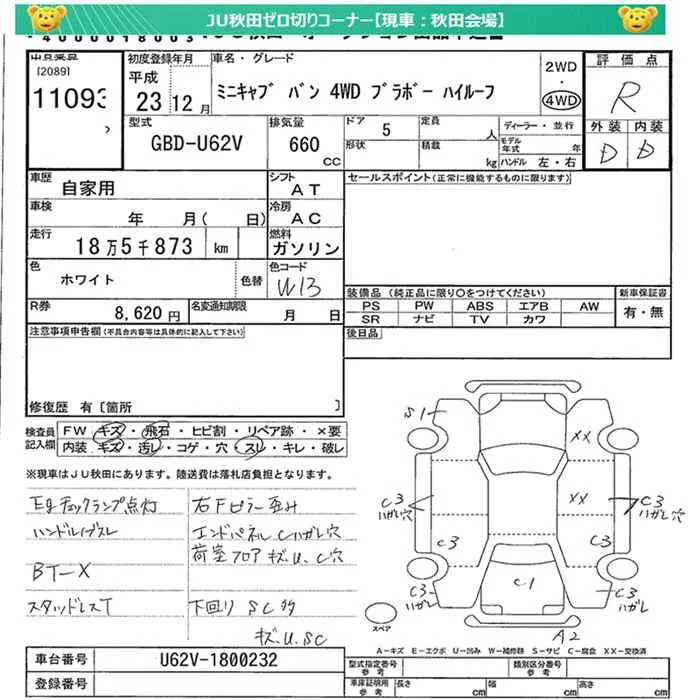 JU秋田ゼロ切りコーナー【現車：秋田会場】
出品票
[2089]
11093
初度登録年月
平成
23 12月
車名・グレード
ミニキャブ バン 4WD ブラボー ハイルーフ
2WD
・
4WD
評価点
R
外装 内装
D D
型式
GBD-U62V
排気量
660
CC
ドア
5
形状
定員
人
積載
kg
ディーラー・並行
モデル年式 年
ハンドル 左・右
車歴
自家用
シフト
AT
セールスポイント(正常に機能するものに限ります)
車検
年 月( 日)
冷房
AC
走行
18万5千873 km
燃料
ガソリン
色
ホワイト
色替
色コード
W13
装備品 (純正品に限り○をつけてください)
PS PW ABS エアB AW
SR ナビ TV カワ
新車保証書
有・無
R券
8,620円
名変通知期限
月 日
後日品
注意事項申告欄(不具合内容等は具体的に記入して下さい)
修復歴 有〔箇所 〕
検査員記入欄
FW キズ・飛石・ヒビ割・リペア跡・×要
内装 キズ・汚し・コゲ・穴・スレ・キレ・破レ
※現車はJU秋田にあります。陸送費は落札店負担となります。
Egチェックランプ点灯
ハンドルノブスレ
BT-X
スタッドレスT
右Fピラー歪み
エンドパネルCハガレ穴
荷室フロアキズU、C穴
下回りSC多
キズ、U、SC
S1
XX
XX
C3
ハガレ穴
C3
ハガレ穴
C3
C3
C1
C3
ハガレ
C3
ハガレ
A2
スペア
A-キズ E-エクボ U-凹み W-補修跡 S-サビ C-腐食 XX-交換済
車台番号
U62V-1800232
登録番号
型式指定番号
参考
類別区分番号
参考
車庫証明用
参考
長さ cm
幅 cm
高さ cm